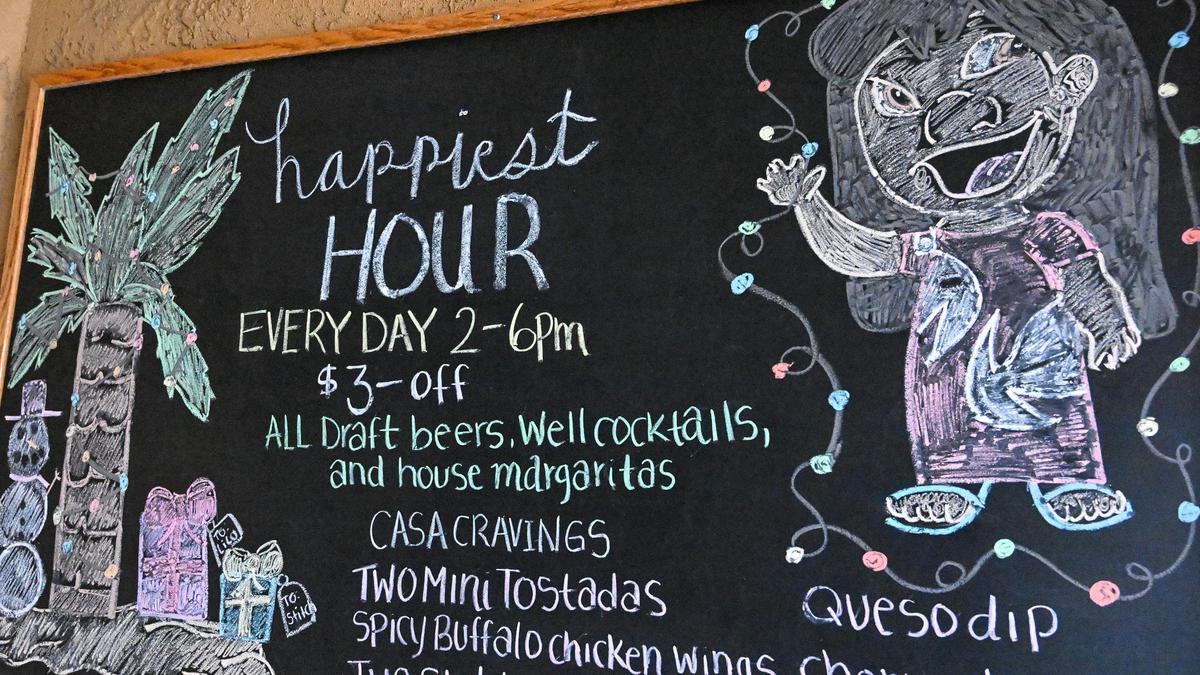 happiest
HOUR
EVERY DAY 2-6pm
$3-off
ALL Draft beers, Well cocktails,
and house margaritas
CASA CRAVINGS
TWO Mini Tostadas
Queso dip
SPICY Buffalo chicken wings
TO: Lilo
TO: Stitch